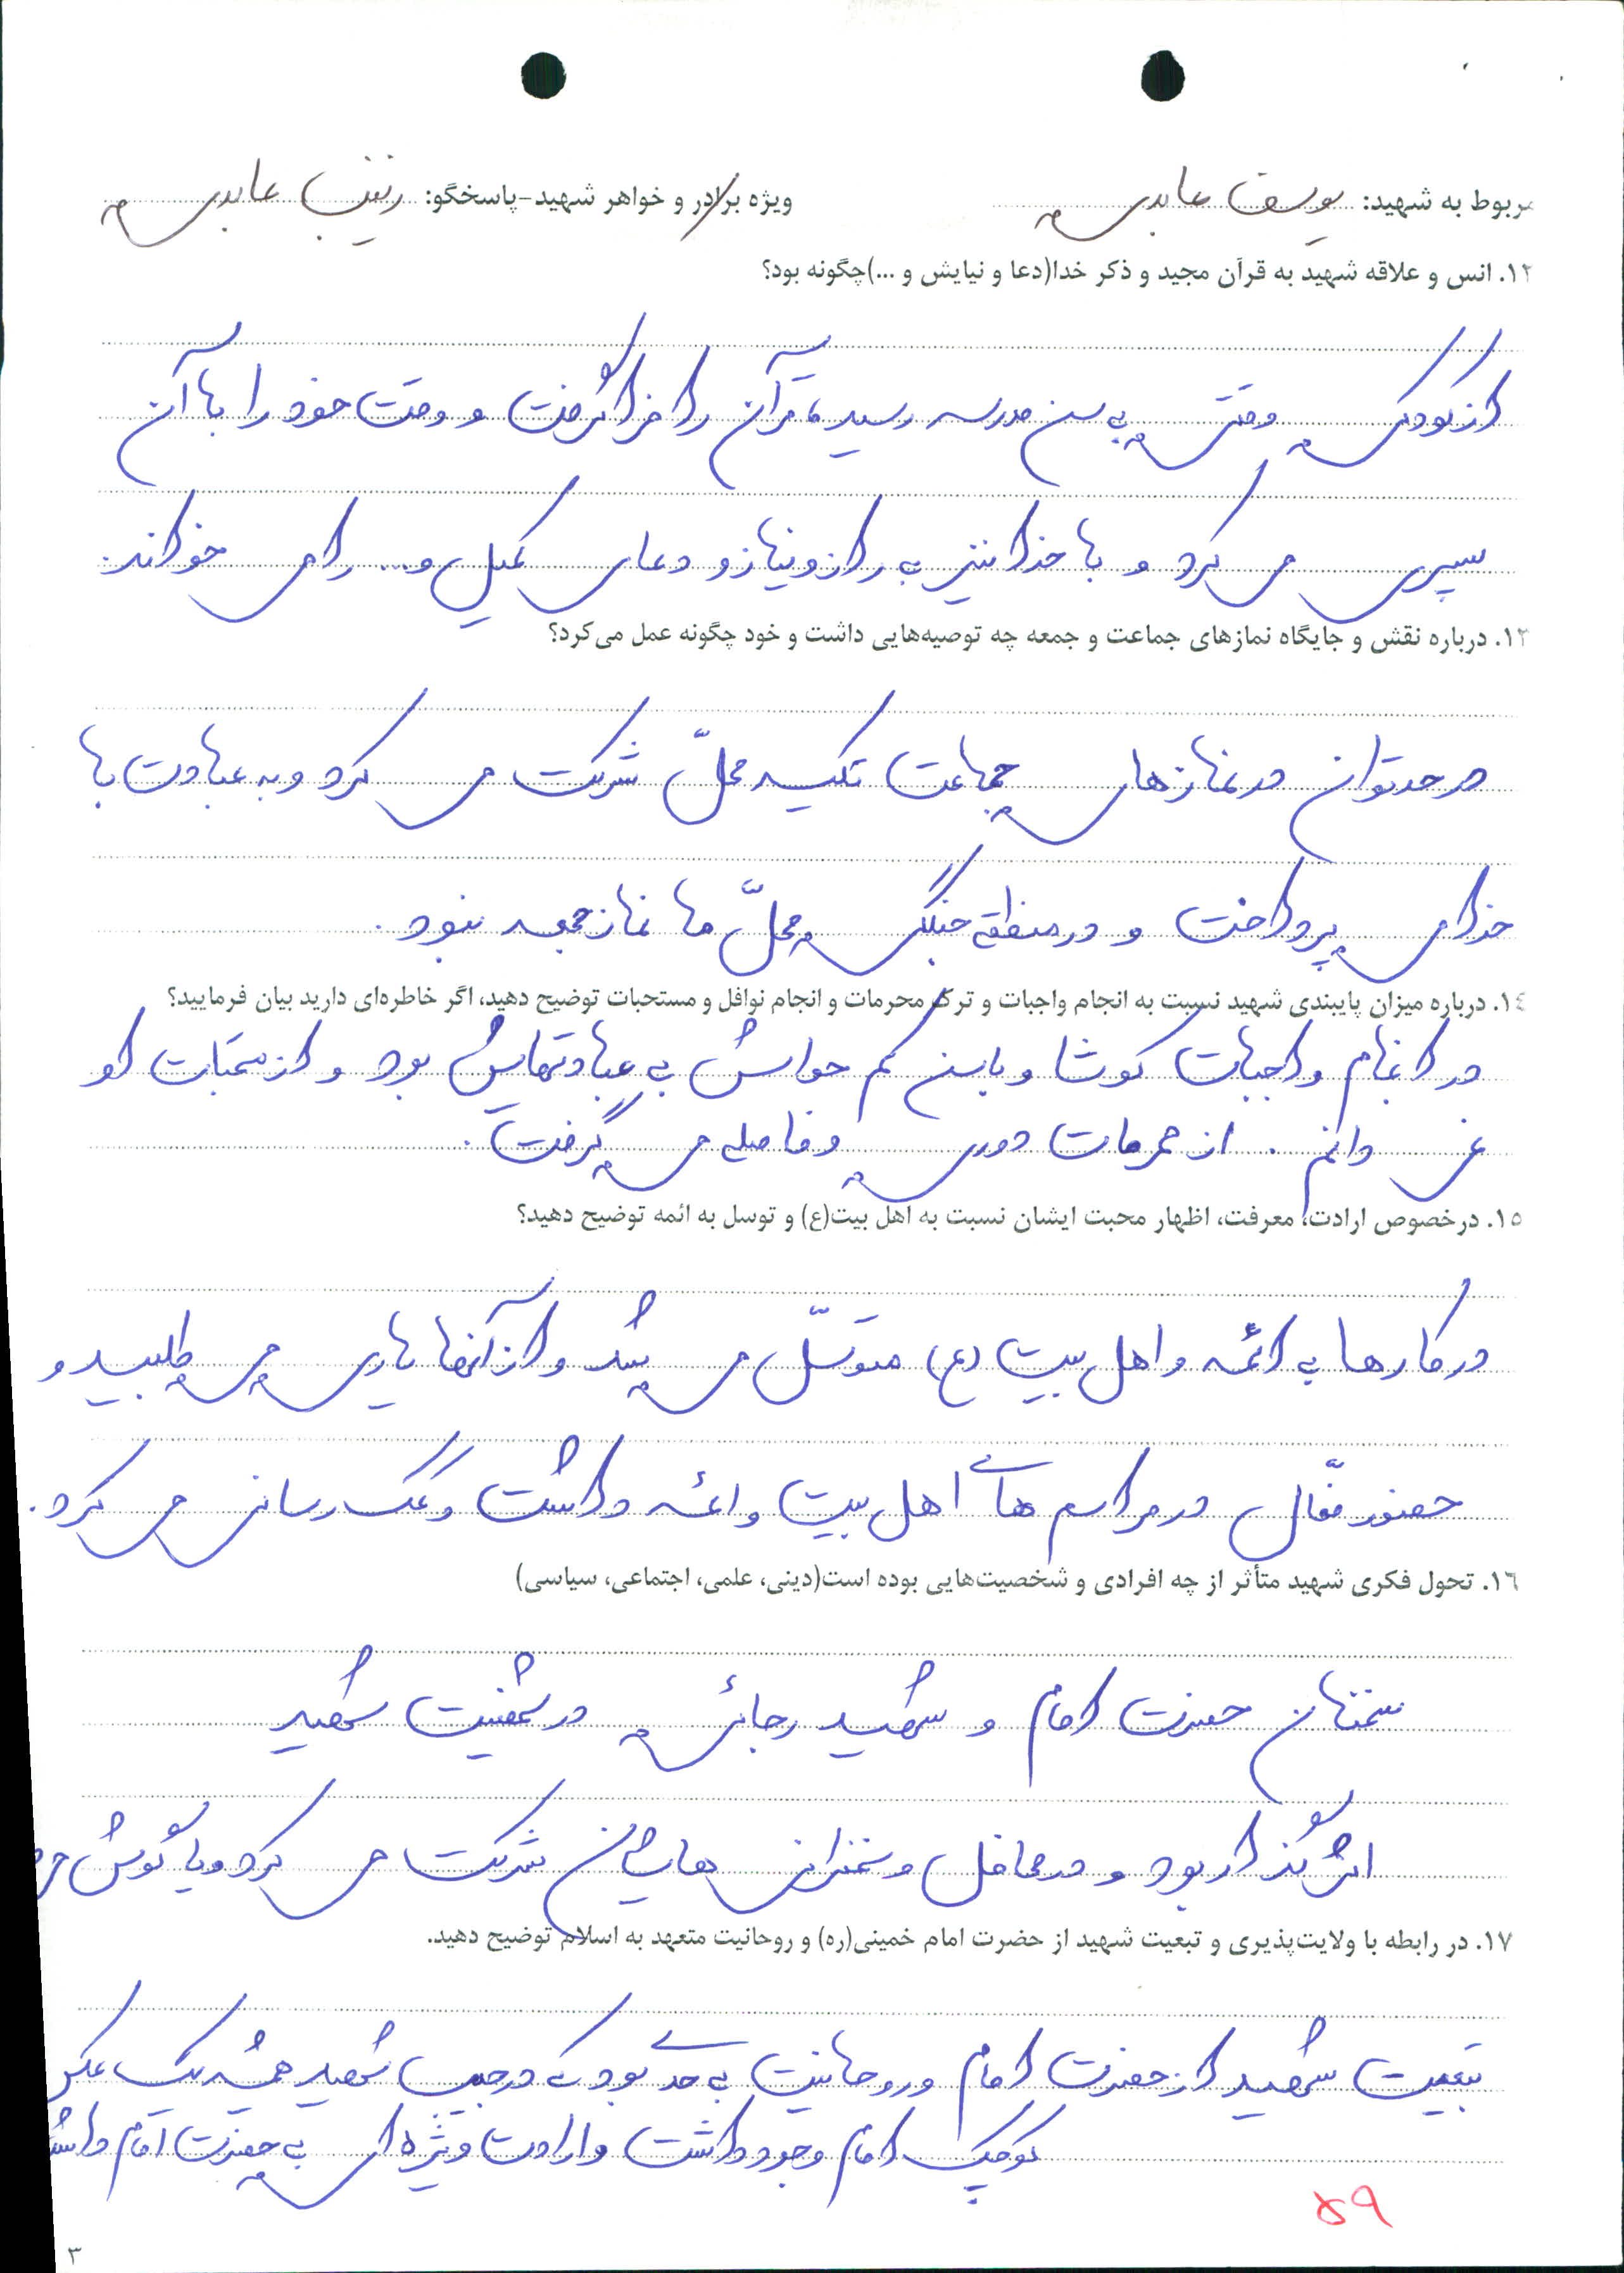 مربوط به شهید: یوسف عابدی
ویژه برادر و خواهر شهید-پاسخگو: زینب عابدی
۱۲. انس و علاقه شهید به قرآن مجید و ذکر خدا(دعا و نیایش و ...)چگونه بود؟
از کودکی وقتی به سن مدرسه رسید، قرآن را فرا گرفت و وقت خود را با آن
سپری می کرد و با خدا نیز به راز و نیاز و دعای کمیل و... را می خواند.
۱۳. درباره نقش و جایگاه نمازهای جماعت و جمعه چه توصیه‌هایی داشت و خود چگونه عمل می‌کرد؟
در حد توان در نمازهای جماعت تکیه محلّ شرکت می کرد و به عبادت با
خدا می پرداخت و در منطقه جنگی محلّ ما نماز جمعه نبود.
۱۴. درباره میزان پایبندی شهید نسبت به انجام واجبات و ترک محرمات و انجام نوافل و مستحبات توضیح دهید، اگر خاطره‌ای دارید بیان فرمایید؟
در انجام واجبات کوشا و با سن کم حواسش به عبادتهایش بود و از مستحبّات او
نمی دانم. از محرمات دوری و فاصله می گرفت.
۱۵. درخصوص ارادت، معرفت، اظهار محبت ایشان نسبت به اهل بیت(ع) و توسل به ائمه توضیح دهید؟
در کارها به ائمه و اهل بیت (ع) متوسّل می شد و از آنها یاری می طلبید و
حضور فعّال در مراسم های اهل بیت و ائمه داشت و کمک رسانی می کرد.
۱۶. تحول فکری شهید متأثر از چه افرادی و شخصیت‌هایی بوده است(دینی، علمی، اجتماعی، سیاسی)
سخنان حضرت امام و شهید رجائی در شخصیت شهید
اثر گذار بود و در محافل و سخنرانی هایشان شرکت می کرد و یا گوش می
۱۷. در رابطه با ولایت‌پذیری و تبعیت شهید از حضرت امام خمینی(ره) و روحانیت متعهد به اسلام توضیح دهید.
تبعیت شهید از حضرت امام و روحانیت به حدی بود که در جیب شهید همیشه یک عکس
کوچک امام وجود داشت و ارادت ویژه ای به حضرت امام داشت
۵۹
۳